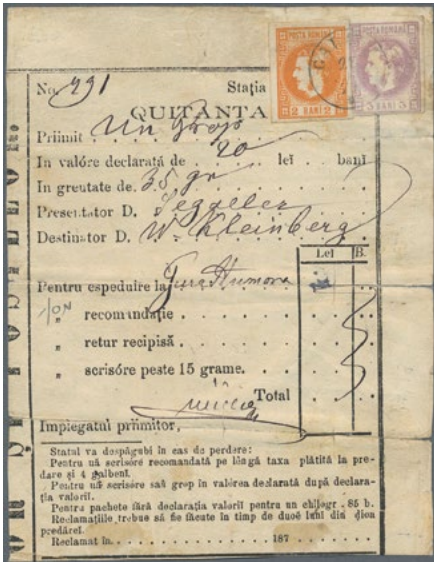 POSTA ROMANA POSTA ROMANA
2 BANI 2 5 BANI 5
No. 791 Stația
QUITANTA
Priimit Un Grop
In valóre declarată de 20 leĭ banĭ
In greutate de 35 gr
Presentator D.
Destinator D. W. Kleinberg
Leĭ B.
Pentru espeduire la Gura Humora
„ recomandație
„ retur recipisă
„ scrisóre peste 15 grame.
Total
Impiegatul priimitor,
Statul va despăgubi în cas de perdere:
Pentru uă scrisóre recomandată pe lêngă taxa plătită la pre-
dare și 4 galbenĭ.
Pentru uă scrisóre saŭ grop in valórea declarată după declara-
ția valoriĭ.
Pentru pachete fără declarația valoriĭ pentru un chilogr. 85 b.
Reclamațiile trebue să fie făcute în timp de duoě lunĭ din dioa
predăreĭ.
Reclamat în 187